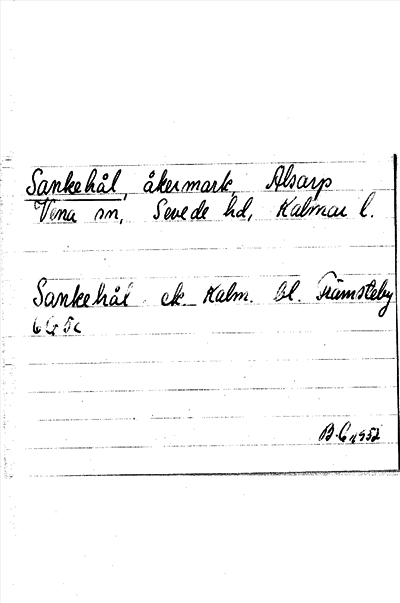 Sankehål, åkermark, Alsarp
Vena sn, Sevede hd, Kalmar l.
Sankehål ek. Kalm. bl. Främsteby
6G5c
B.G. 1952